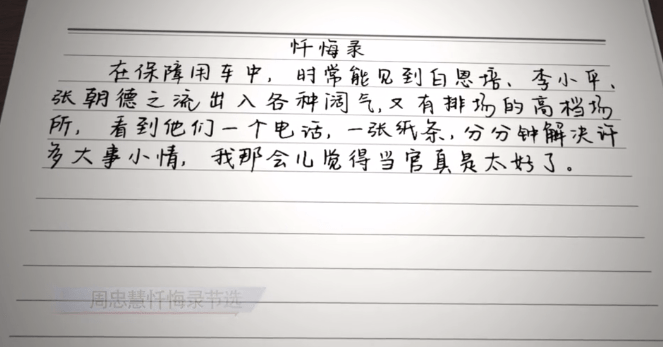 忏悔录
在保障用车中，时常能见到白恩培、李小平、
张朝德之流出入各种阔气，又有排场的高档场
所，看到他们一个电话，一张纸条，分分钟解决许
多大事小情，我那会儿觉得当官真是太好了。
周忠慧忏悔录节选